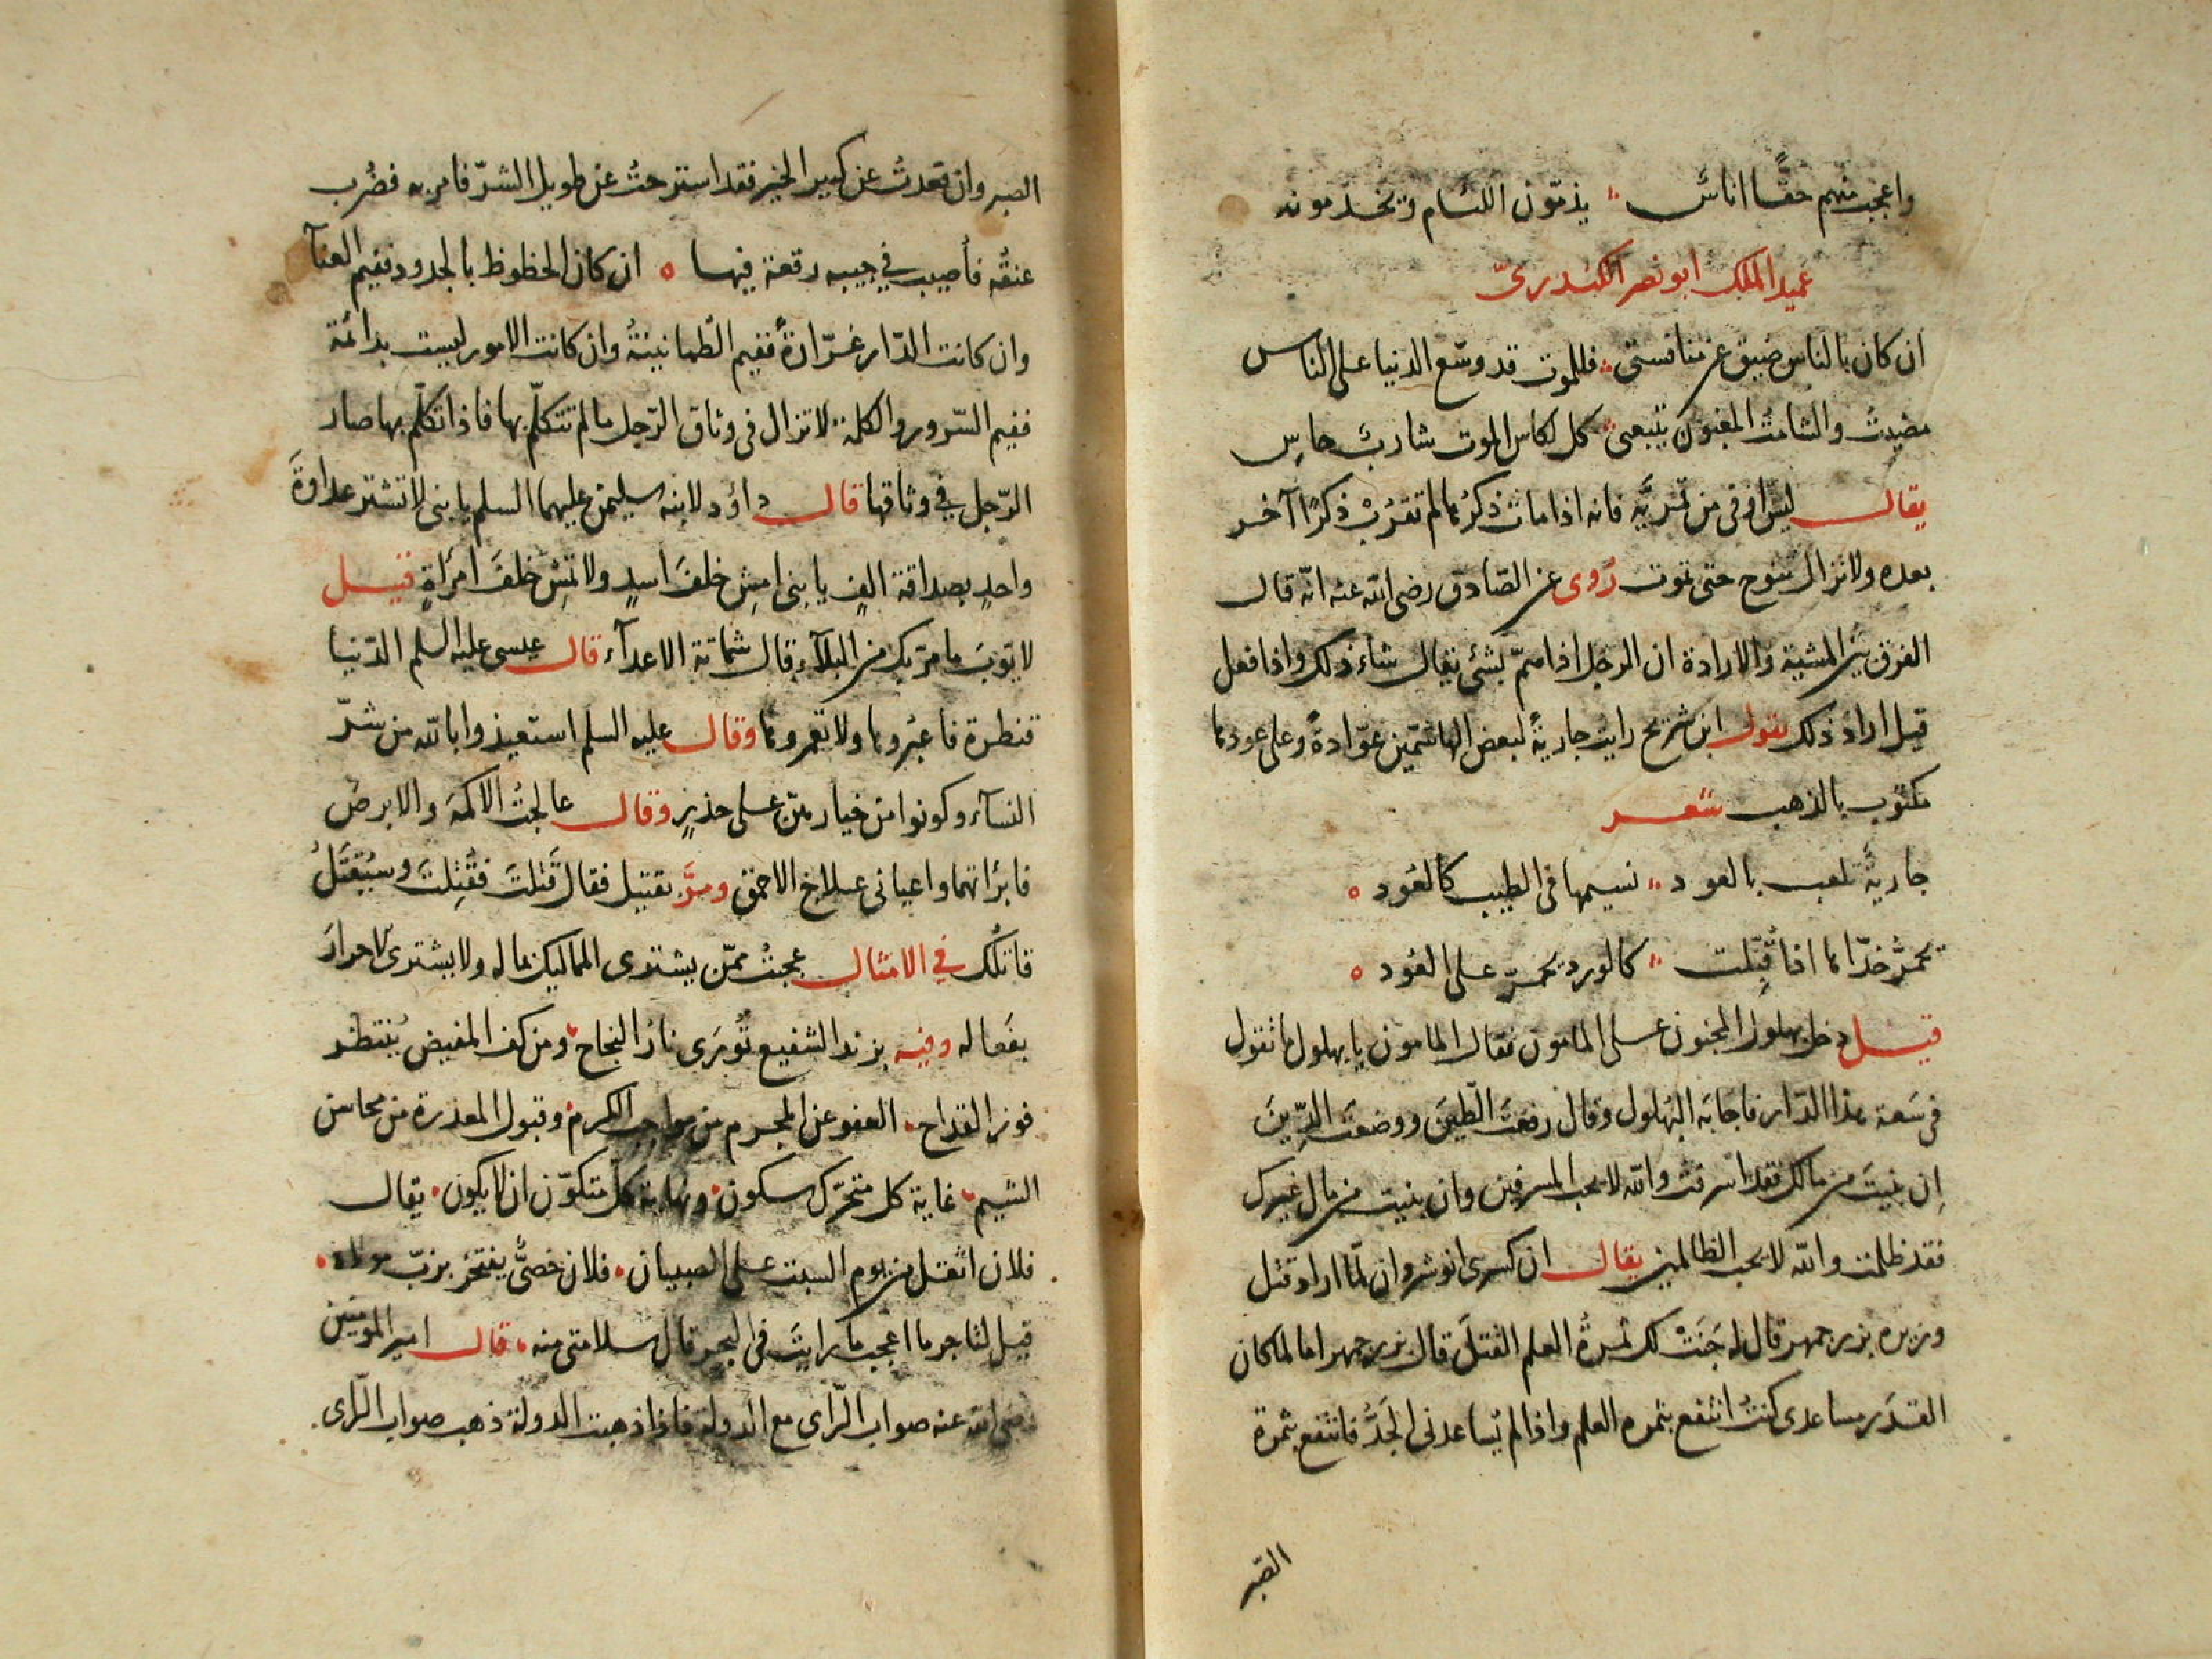 واعجب منهم حقًا اناسٌ ؞ يذمّون اللئام ويخدمونه
عميد الملك ابو نصر الكندرىّ
ان كان بالناس ضيق عن منافستى ؞ فللموت قد وسّع الدنيا على الناس
مضيتُ والشامتُ المغبون يتبعنى ؞ كل لكاس الموت شاربٌ حاسِ
يقال ليس اوفى من قمريّه فانه اذا مات ذكرها لم تقرُبْ ذكرًا آخر
بعده ولا تزال تنوح حتى تموت رُوى عن الصّادق رضى الله عنه انّه قال
الفرق بين المشية والارادة ان الرجل اذا همّ بشئ يقال شاء ذلك واذا فعل
قيل اراد ذلك يقول ابن شريح رايت جاريةً لبعض الهاشمّين عوّادةً وعلى عودها
مكتوب بالذهب شعر
جاريةٌ تلعب بالعود ؞ نسيمها فى الطيب كالعُود ٥
تحمرُّ خدّاها اذا قُبّلت ؞ كالورد يحمرّ على العُود ٥
قيل دخل بهلول المجنون على المامون فقال المامون يا بهلول ما تقول
فى سَعة هذا الدّار فاجابَه البُهلول وقال رفعتَ الطّينَ ووضعتَ الدّينَ
اِن بنيتَ من مالك فقد اسرفتَ والله لا يحب المسرفين وان بنيت من مال غيرك
فقد ظلمت والله لا يحب الظالمين يقال ان كسرى انوشروان لمّا اراد قتل
وزيره بزرجمهر قال له جَنَتْ لك ثمرةُ العلم القتلَ قال بزرجمهر اما لما كان
القدَر يساعدى كنتُ انتفع بثمره العلم واذا لم يُساعدنى الجَدُّ فانتفع بثمرة
الصّبر
الصبر وان قعدتُ عن كبير الخير فقد استرحتُ عن طويل الشرّ فامر به فضُرب
عنقُه فأصيب فى جيبه رقعة فيها ٥ ان كان الحظوظ بالجدود ففيم العنآ
وان كانت الدّار غرّارةً ففيم الطّمانينةُ وان كانت الامور ليست بدائمة
ففيم السّرور والكلمة لا تزال فى وثاق الرّجل ما لم تتكلّم بها فاذا تكلّم بها صار
الرّجل فى وثاقها قال داؤد لابنه سليمن عليهما السلم يا بنى لا تشتر عداوةَ
واحدٍ بصداقة الفٍ يا بنى امشِ خلفَ اسدٍ ولا تمشِ خلفَ امرأةٍ قيل
لايّوبَ ما مرّ بك من البلآء قال شماتة الاعدآء قال عيسى عليه السلم الدّنيا
قنطرة فاعبُروها ولا تعمروها وقال عليه السلم استعيذوا بالله من شرّ
النسآء وكونوا من خيارهنّ على حذرٍ وقال عالجتُ الاكمهَ والابرصَ
فابرٔاتهما واعيانى علاج الاحمق ومرَّ بقتيل فقال قَتلتَ فقُتِلتَ وسيُقتَلُ
قاتلُك فى الامثال عجبتُ ممّن يشترى المماليك بماله ولا يشترى الاحرارَ
بفَعاله وفيه بزند الشفيع تُورَى نارُ النجاح ومن كف المفيض يُنتظر
فوز القداح العفو عن المجرم من مواجب الكرم وقبول المعذرة من محاسن
الشيم غاية كل متحرّك سكون ونهاية كل متكوّن ان لا يكون يقال
فلان اثقل من يوم السبت على الصبيان فلان خصىٌّ يفتخر بزبّ مولاه
قيل لتاجر ما اعجب ما رايتَ فى البحر قال سلامتى منه قال امير المومنين
رضى الله عنه صواب الرّاى مع الدولة فاذا ذهبت الدولة ذهب صواب الرّاى